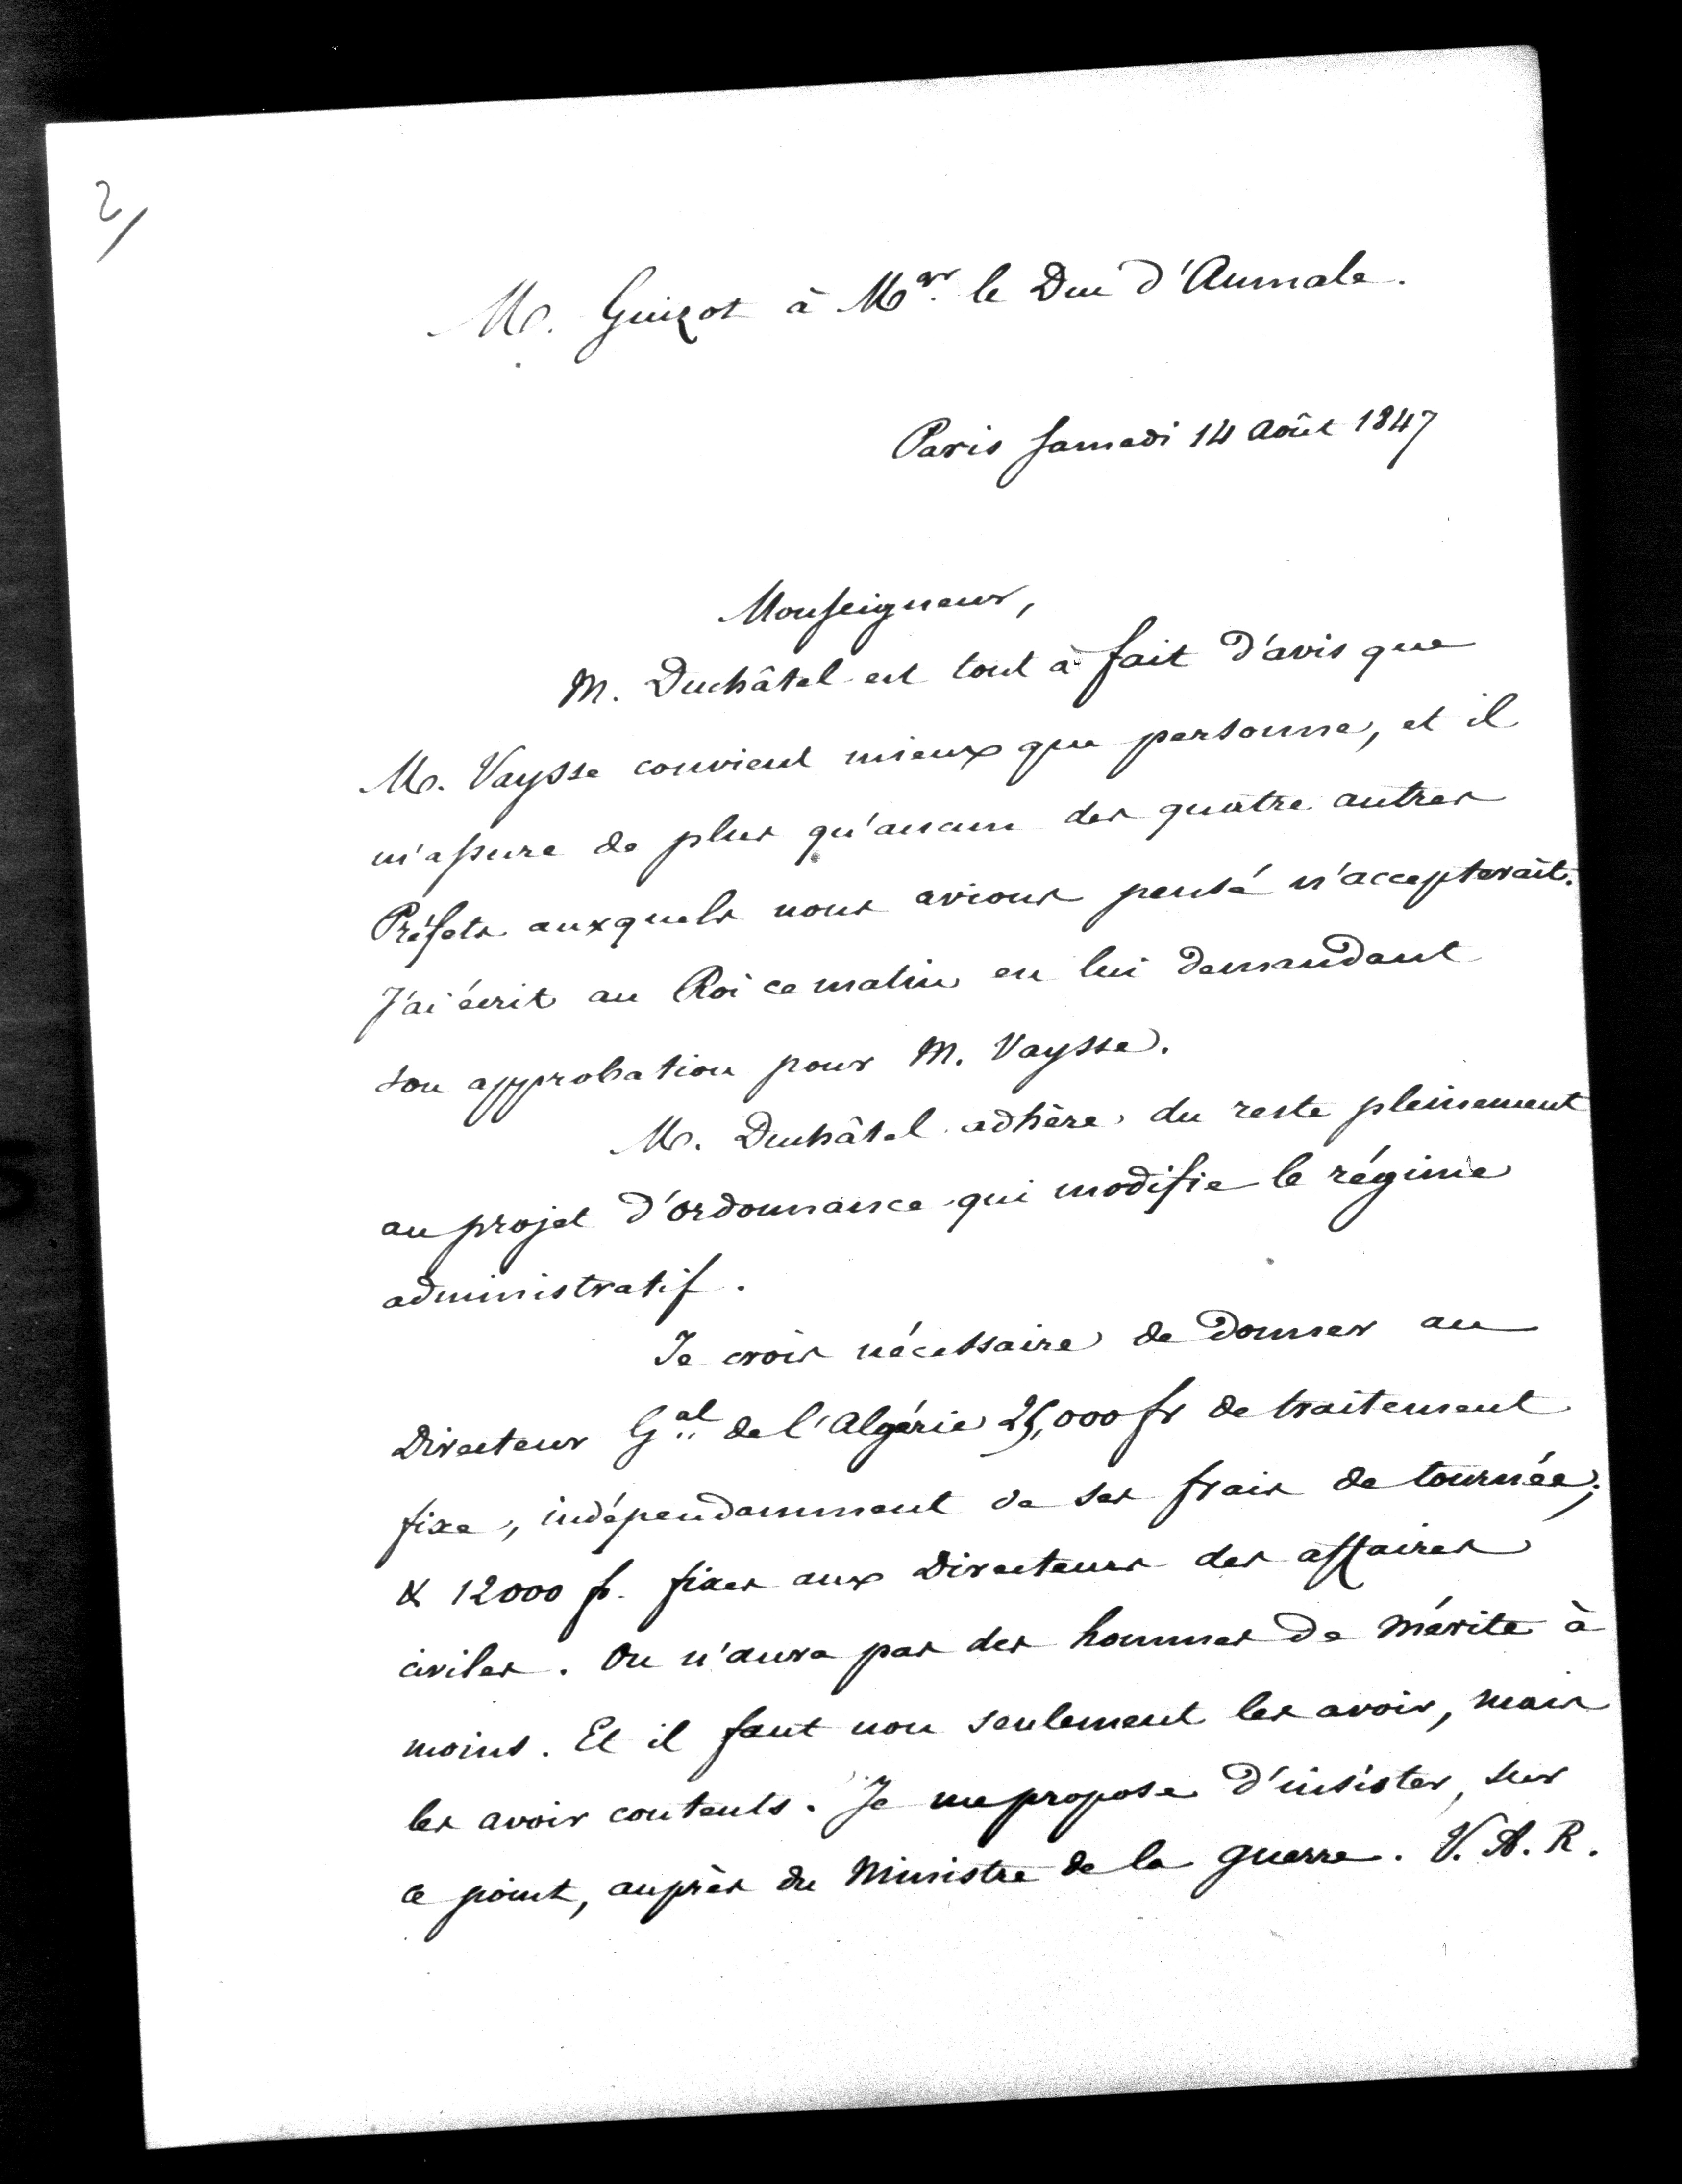 2/
M. Guizot à Mgr. le Duc d'Aumale.
Paris Samedi 14 Août 1847
Monseigneur,
M. Duchâtel est tout à fait d'avis que
M. Vaysse convient mieux que personne, et il
m'assure de plus qu'aucun des quatre autres
Préfets auxquels nous avions pensé n'accepterait.
J'ai écrit au Roi ce matin en lui demandant
son approbation pour M. Vaysse.
M. Duchâtel adhère du reste pleinement
au projet d'ordonnance qui modifie le régime
administratif.
Je crois nécessaire de donner au
Directeur Gal. de l'Algérie 25,000 fr de traitement
fixe, indépendamment de ses frais de tournée;
& 12000 f. fixes aux Directeurs des affaires
civiles. On n'aura pas des hommes de mérite à
moins. Et il faut non seulement les avoir, mais
les avoir contents. Je me propose d'insister, sur
ce point, auprès du Ministre de la guerre. V. A. R.